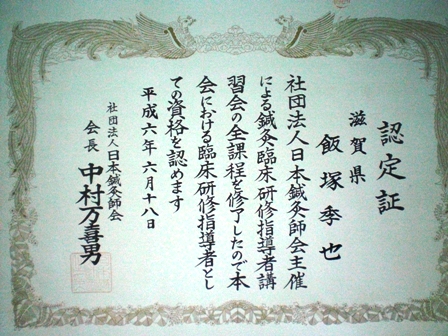 認定証
滋賀県
飯塚季也
社団法人日本鍼灸師会主催
による鍼灸臨床研修指導者講
習会の全課程を修了したので本
会における臨床研修指導者とし
ての資格を認めます
平成六年六月十八日
社団法人日本鍼灸師会
会長 中村万喜男